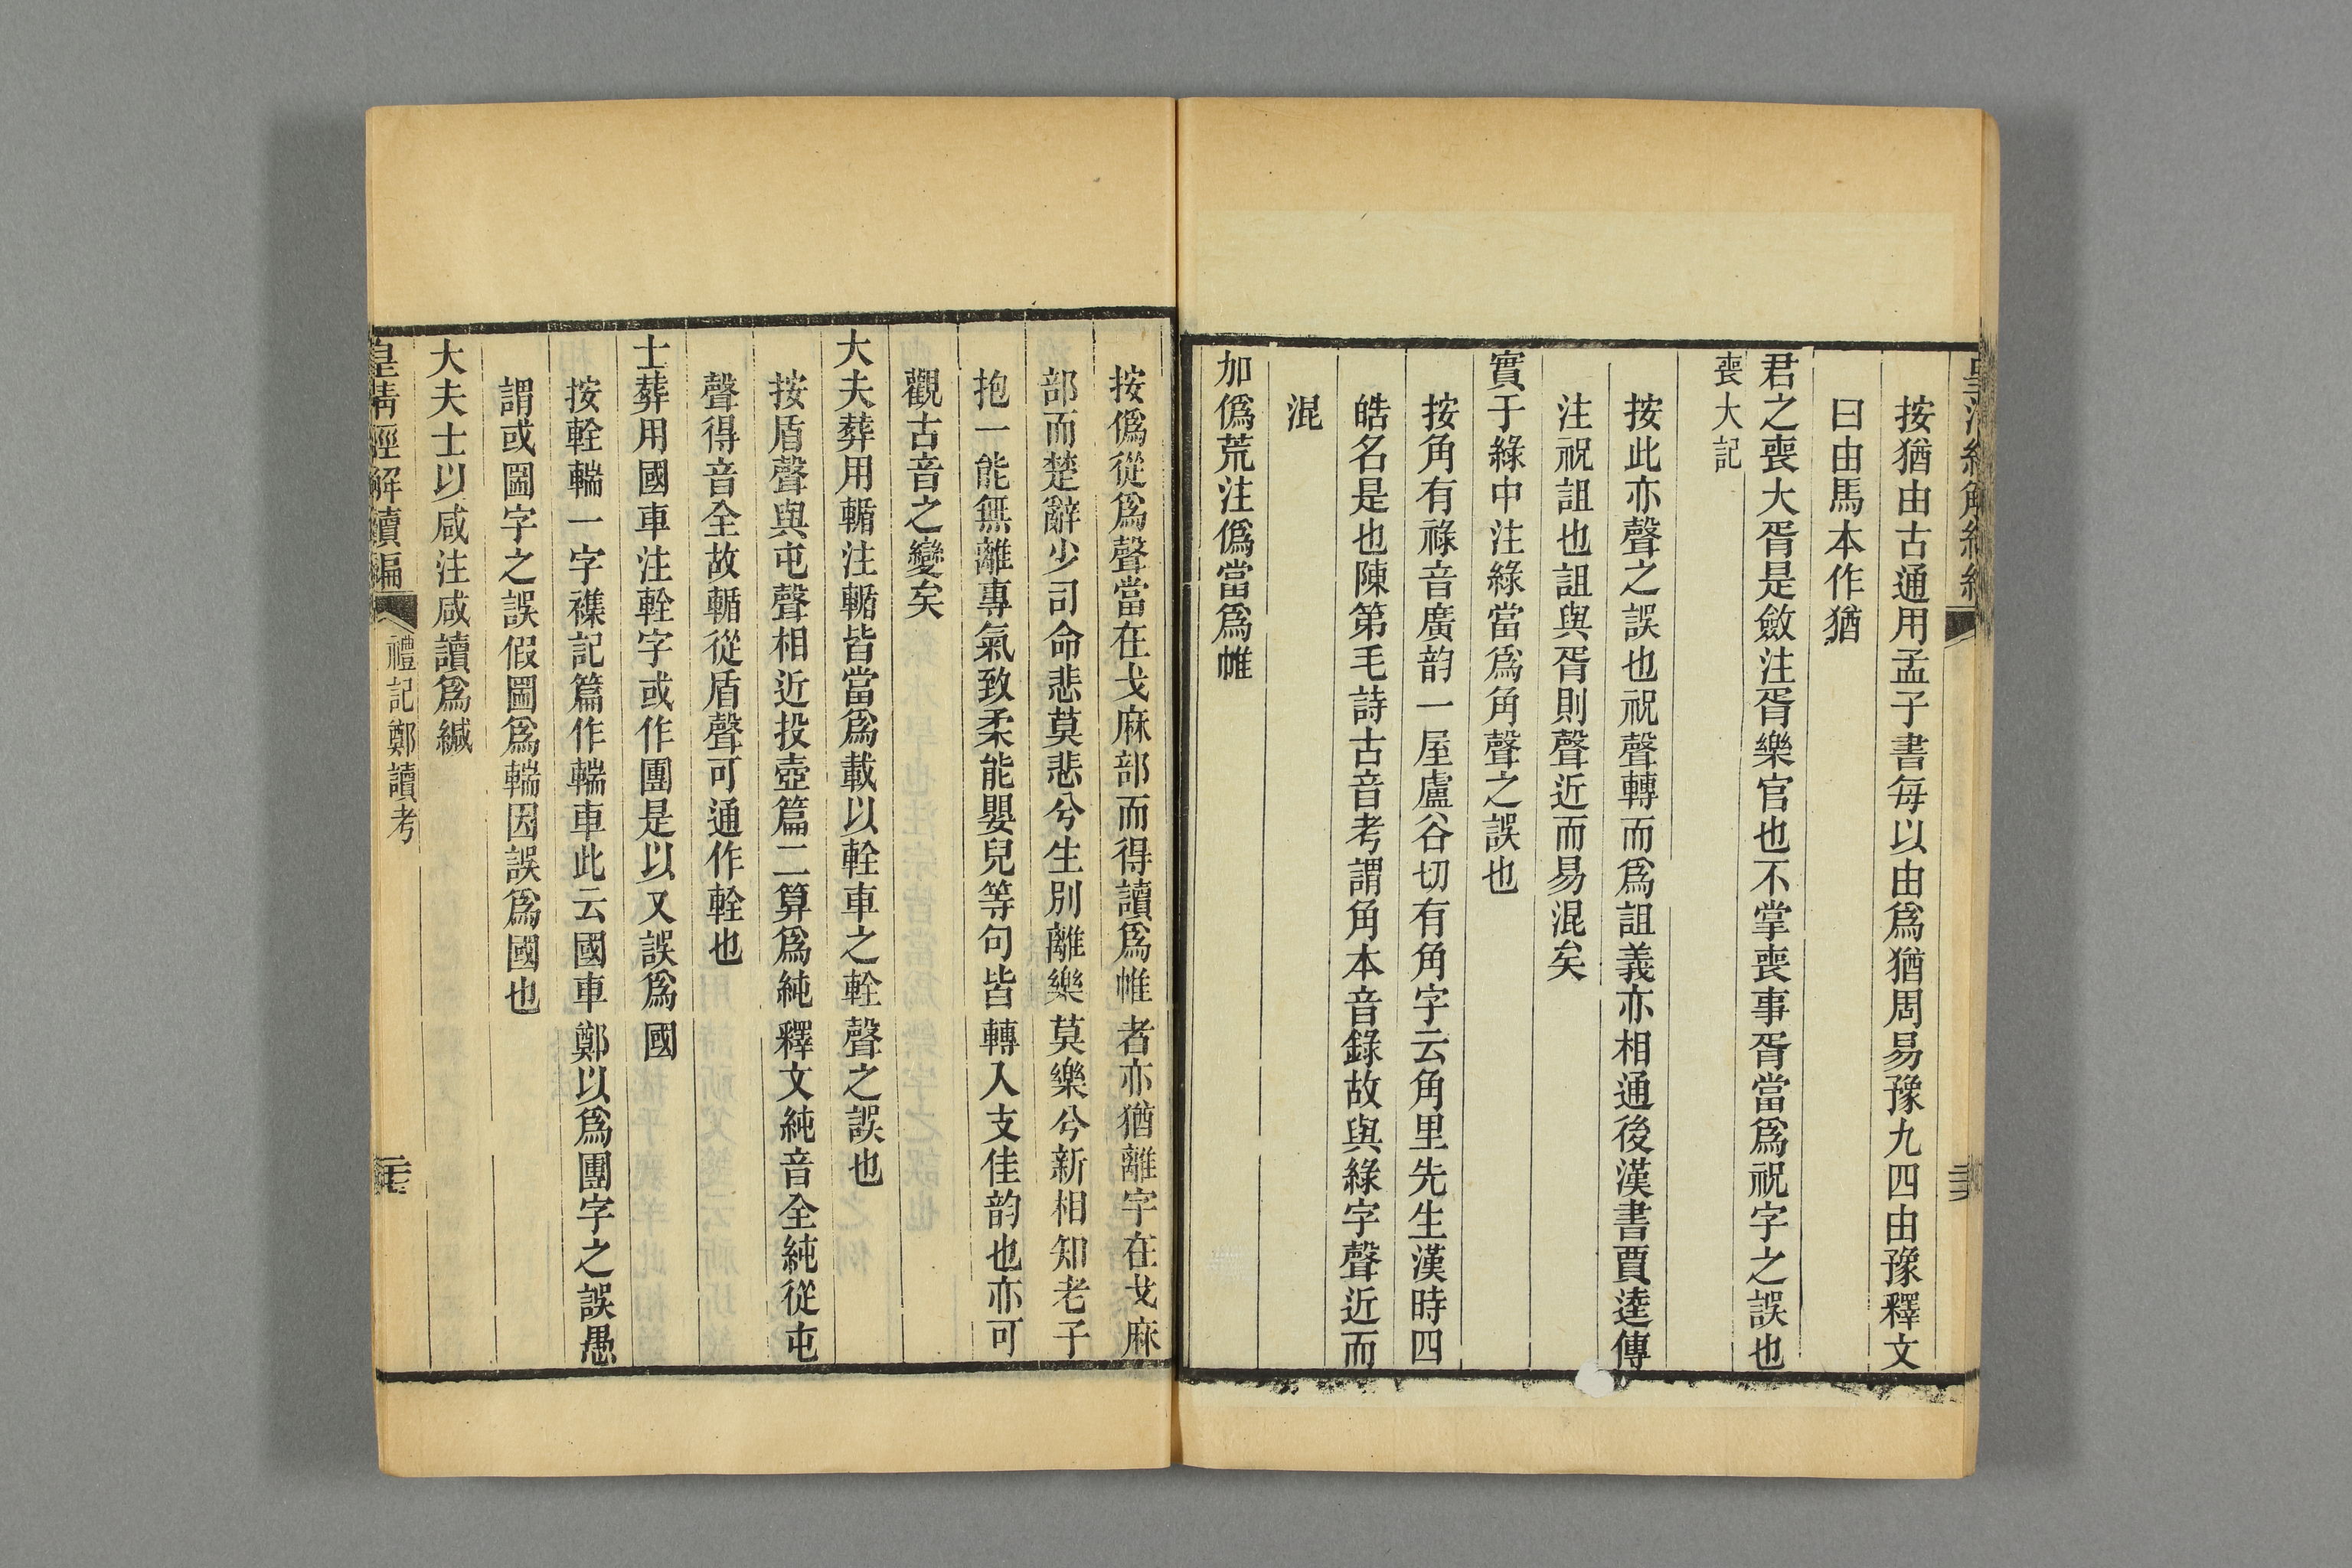 按猶由古通用孟子書每以由爲猶周易豫九四由豫釋文
曰由馬本作猶
君之喪大胥是斂注胥樂官也不掌喪事胥當爲祝字之誤也
喪大記
按此亦聲之誤也祝聲轉而爲詛義亦相通後漢書賈逵傳
注祝詛也詛與胥則聲近而易混矣
實于綠中注綠當爲角聲之誤也
按角有祿音廣韵一屋盧谷切有角字云角里先生漢時四
皓名是也陳第毛詩古音考謂角本音錄故與綠字聲近而
混
加僞荒注僞當爲帷
按僞從爲聲當在戈麻部而得讀爲帷者亦猶離字在戈麻
部而楚辭少司命悲莫悲兮生別離樂莫樂兮新相知老子
抱一能無離專氣致柔能嬰兒等句皆轉入支佳韵也亦可
觀古音之變矣
大夫葬用輴注輴皆當爲載以輇車之輇聲之誤也
按盾聲與屯聲相近投壺篇二算爲純釋文純音全純從屯
聲得音全故輴從盾聲可通作輇也
士葬用國車注輇字或作團是以又誤爲國
按輇輲一字襍記篇作輲車此云國車鄭以爲團字之誤愚
謂或圌字之誤假圌爲輲因誤爲國也
大夫士以咸注咸讀爲緘
皇清經解續編
禮記鄭讀考